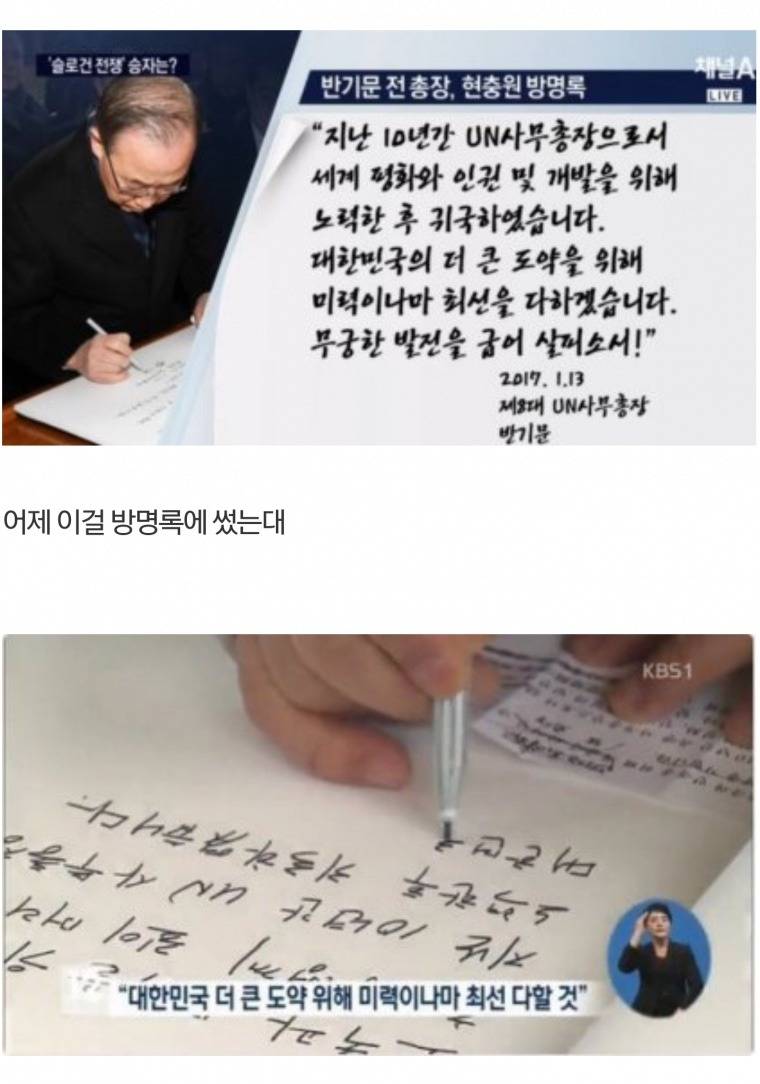 '슬로건 전쟁' 승자는?
채널A
LIVE
반기문 전 총장, 현충원 방명록
“지난 10년간 UN사무총장으로서
세계 평화와 인권 및 개발을 위해
노력한 후 귀국하였습니다.
대한민국의 더 큰 도약을 위해
미력이나마 최선을 다하겠습니다.
무궁한 발전을 굽어 살피소서!”
2017. 1.13
제8대 UN사무총장
반기문
어제 이걸 방명록에 썼는대
KBS1
대한민국
노력한 후 귀국하였습니다.
지난 10년간 UN 사무총장
“대한민국 더 큰 도약 위해 미력이나마 최선 다할 것”